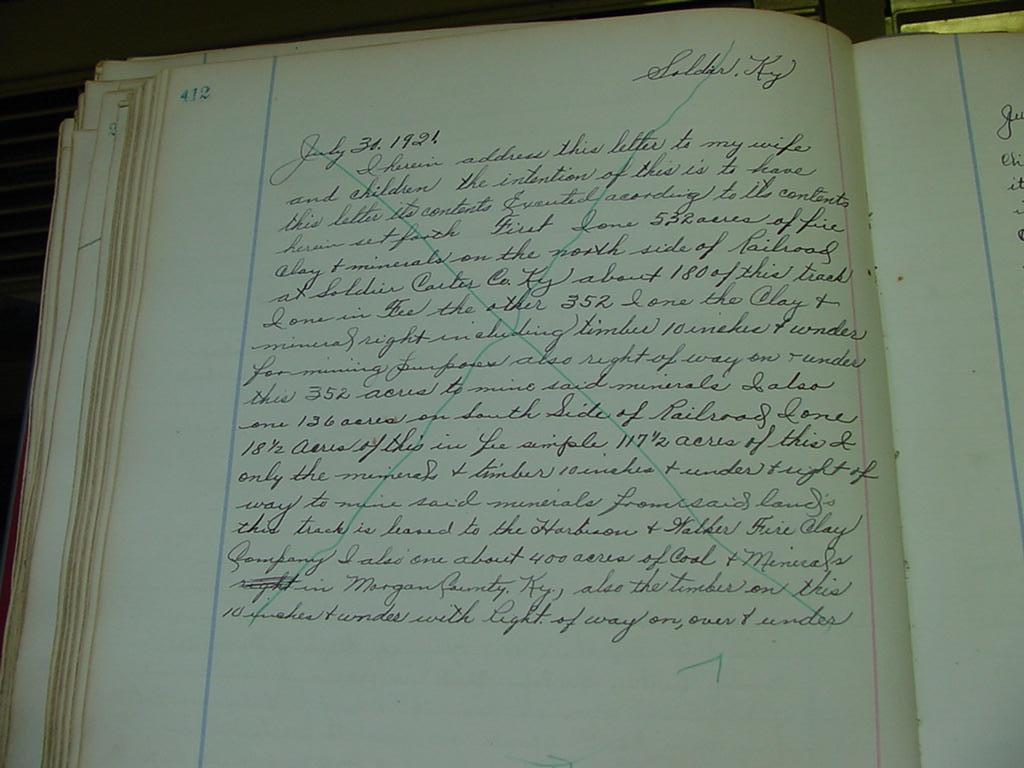 412
Soldier, Ky
July 31, 1921.
I herein address this letter to my wife
and children the intention of this is to have
this letter its contents Executed acording to its contents
herein set forth First I one 532 acres of fire
clay & minerals on the north side of Railroad
at Soldier Carter Co. Ky about 180 of this track
I one in Fee the other 352 I one the Clay &
mineral right including timber 10 inches & under
for mining Purposes also right of way on & under
this 352 acres to mine said minerals I also
one 136 acres on South Side of Railroad I one
18 1/2 Acres of this in fee simple 117 1/2 acres of this I
only the minerals & timber 10 inches & under & right of
way to mine said minerals from said land's
this track is leased to the Harbison & Walker Fire Clay
Company I also one about 400 acres of Coal & Minerals
right in Morgan County, Ky., also the timber on this
10 inches & under with Right of way on, over & under